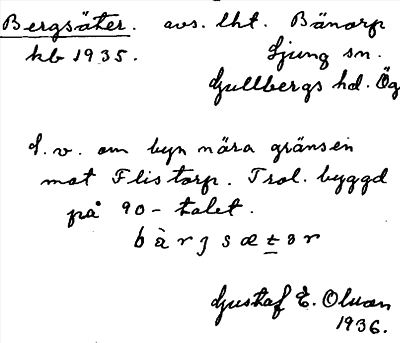 Bergsäter. avs. lht. Bänorp
kb 1935. Ljung sn.
Gullbergs hd. Ög
S.v. om byn nära gränsen
mot Flistorp. Trol. byggd
på 90-talet.
bàrgsætər
Gustaf E. Olsson
1936.